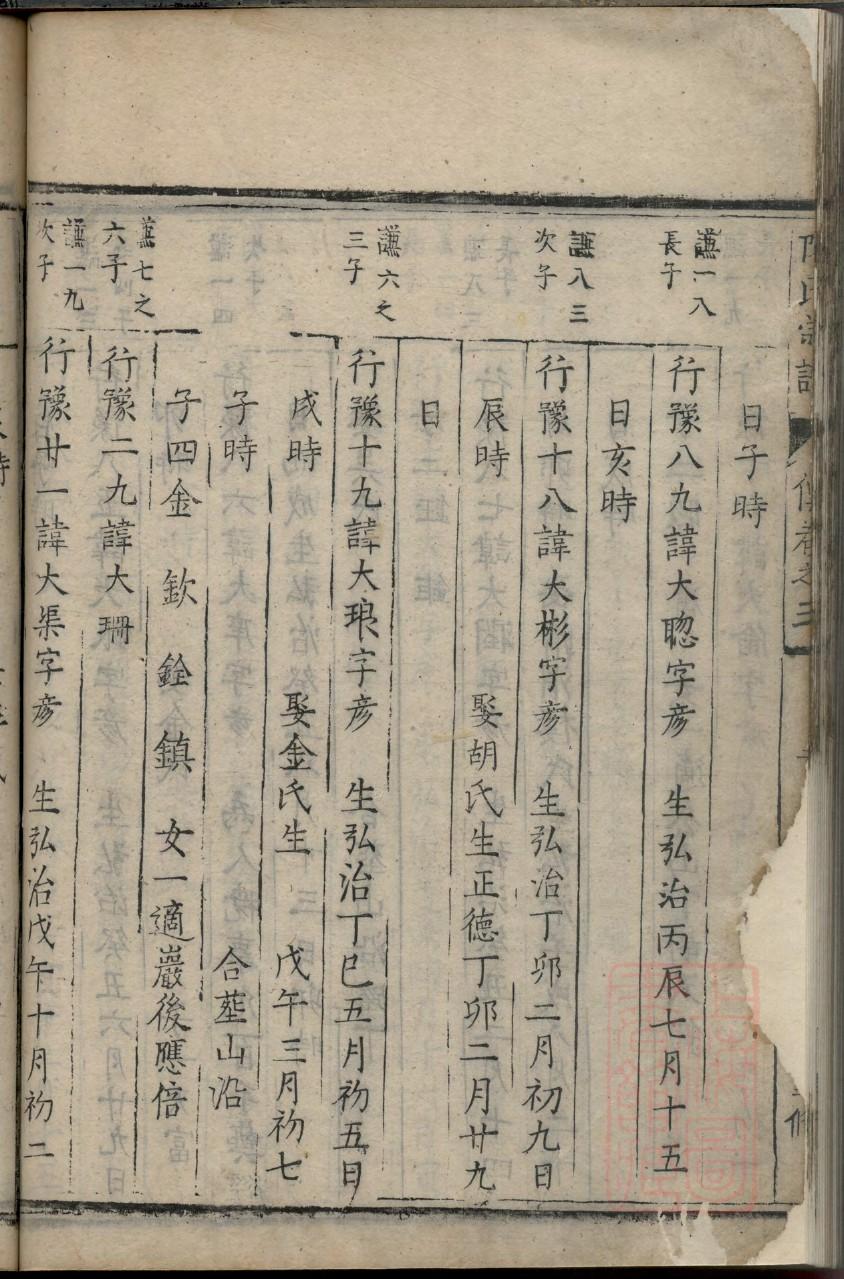 氏宗譜
日子時
謙一八
長子
行豫八九諱大聰字彦 生弘治丙辰七月十五
日亥時
謙八三
次子
行豫十八諱大彬字彦 生弘治丁卯二月初九日
辰時 娶胡氏生正德丁卯二月廿九
日
謙六之
三子
行豫十九諱大琅字彦 生弘治丁巳五月初五日
戌時 娶金氏生 戊午三月初七
子時 合塟山沿
子四金 欽 銓 鎮 女一適巖後應倍
謙七之
六子
行豫二九諱大珊
謙一九
次子
行豫廿一諱大渠字彦 生弘治戊午十月初二